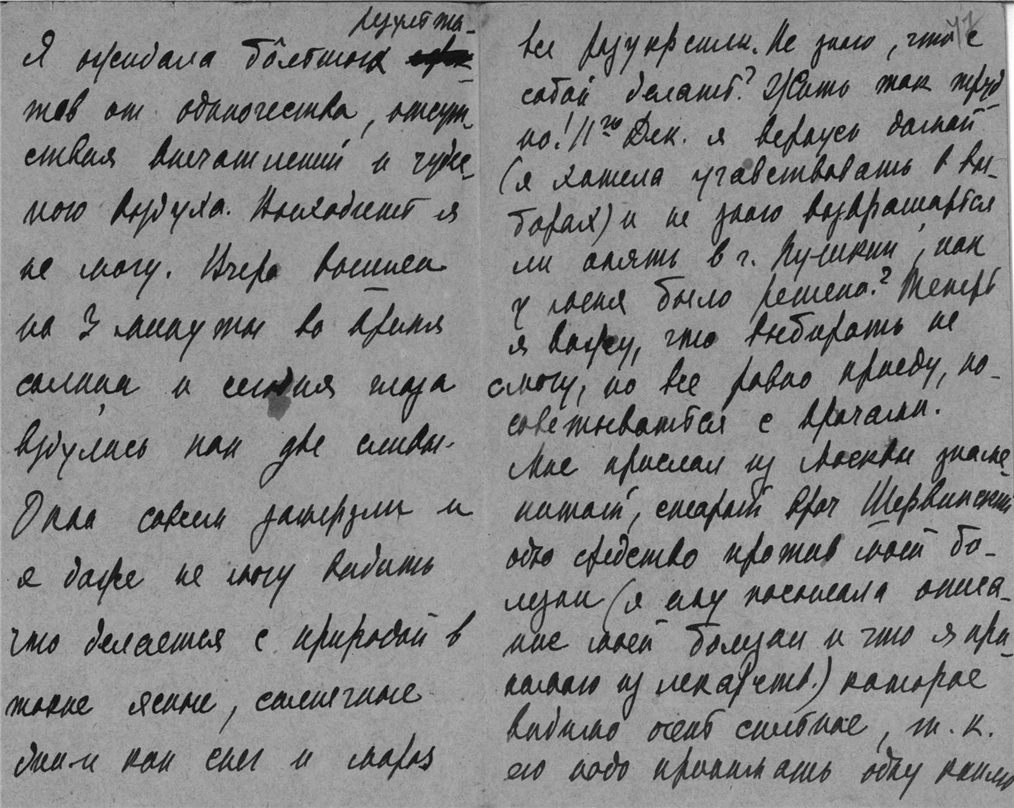 результа-
Я ожидала больших
тов от одиночества, отсут-
ствия впечатлений и чудес-
ного воздуха. Выходить я
не могу. Вчера вышла
на 3 минуты во время
солнца и сегодня глаза
вздулись как две сливы.
Окна совсем замерзли и
я даже не могу видеть
что делается с природой в
такие ясные, солнечные
дни и как снег и мороз
42
все разукрасили. Не знаю, что с
собой делать? Жить так труд
но! 11го Дек. я вернусь домой
(я хотела участвовать в вы-
борах) и не знаю возвращаться
ли опять в г. Пушкин, как
у меня было решено? Теперь
я вижу, что выбирать не
смогу, но все равно приеду, по-
советываться с врачами.
Мне прислал из Москвы знаме-
нитый, старый врач Шервинский
одно средство против моей бо-
лезни (я ему посылала описа-
ние моей болезни и что я при-
нимаю из лекарств.) которое
видимо очень сильное, т. к.
его надо принимать одну каплю